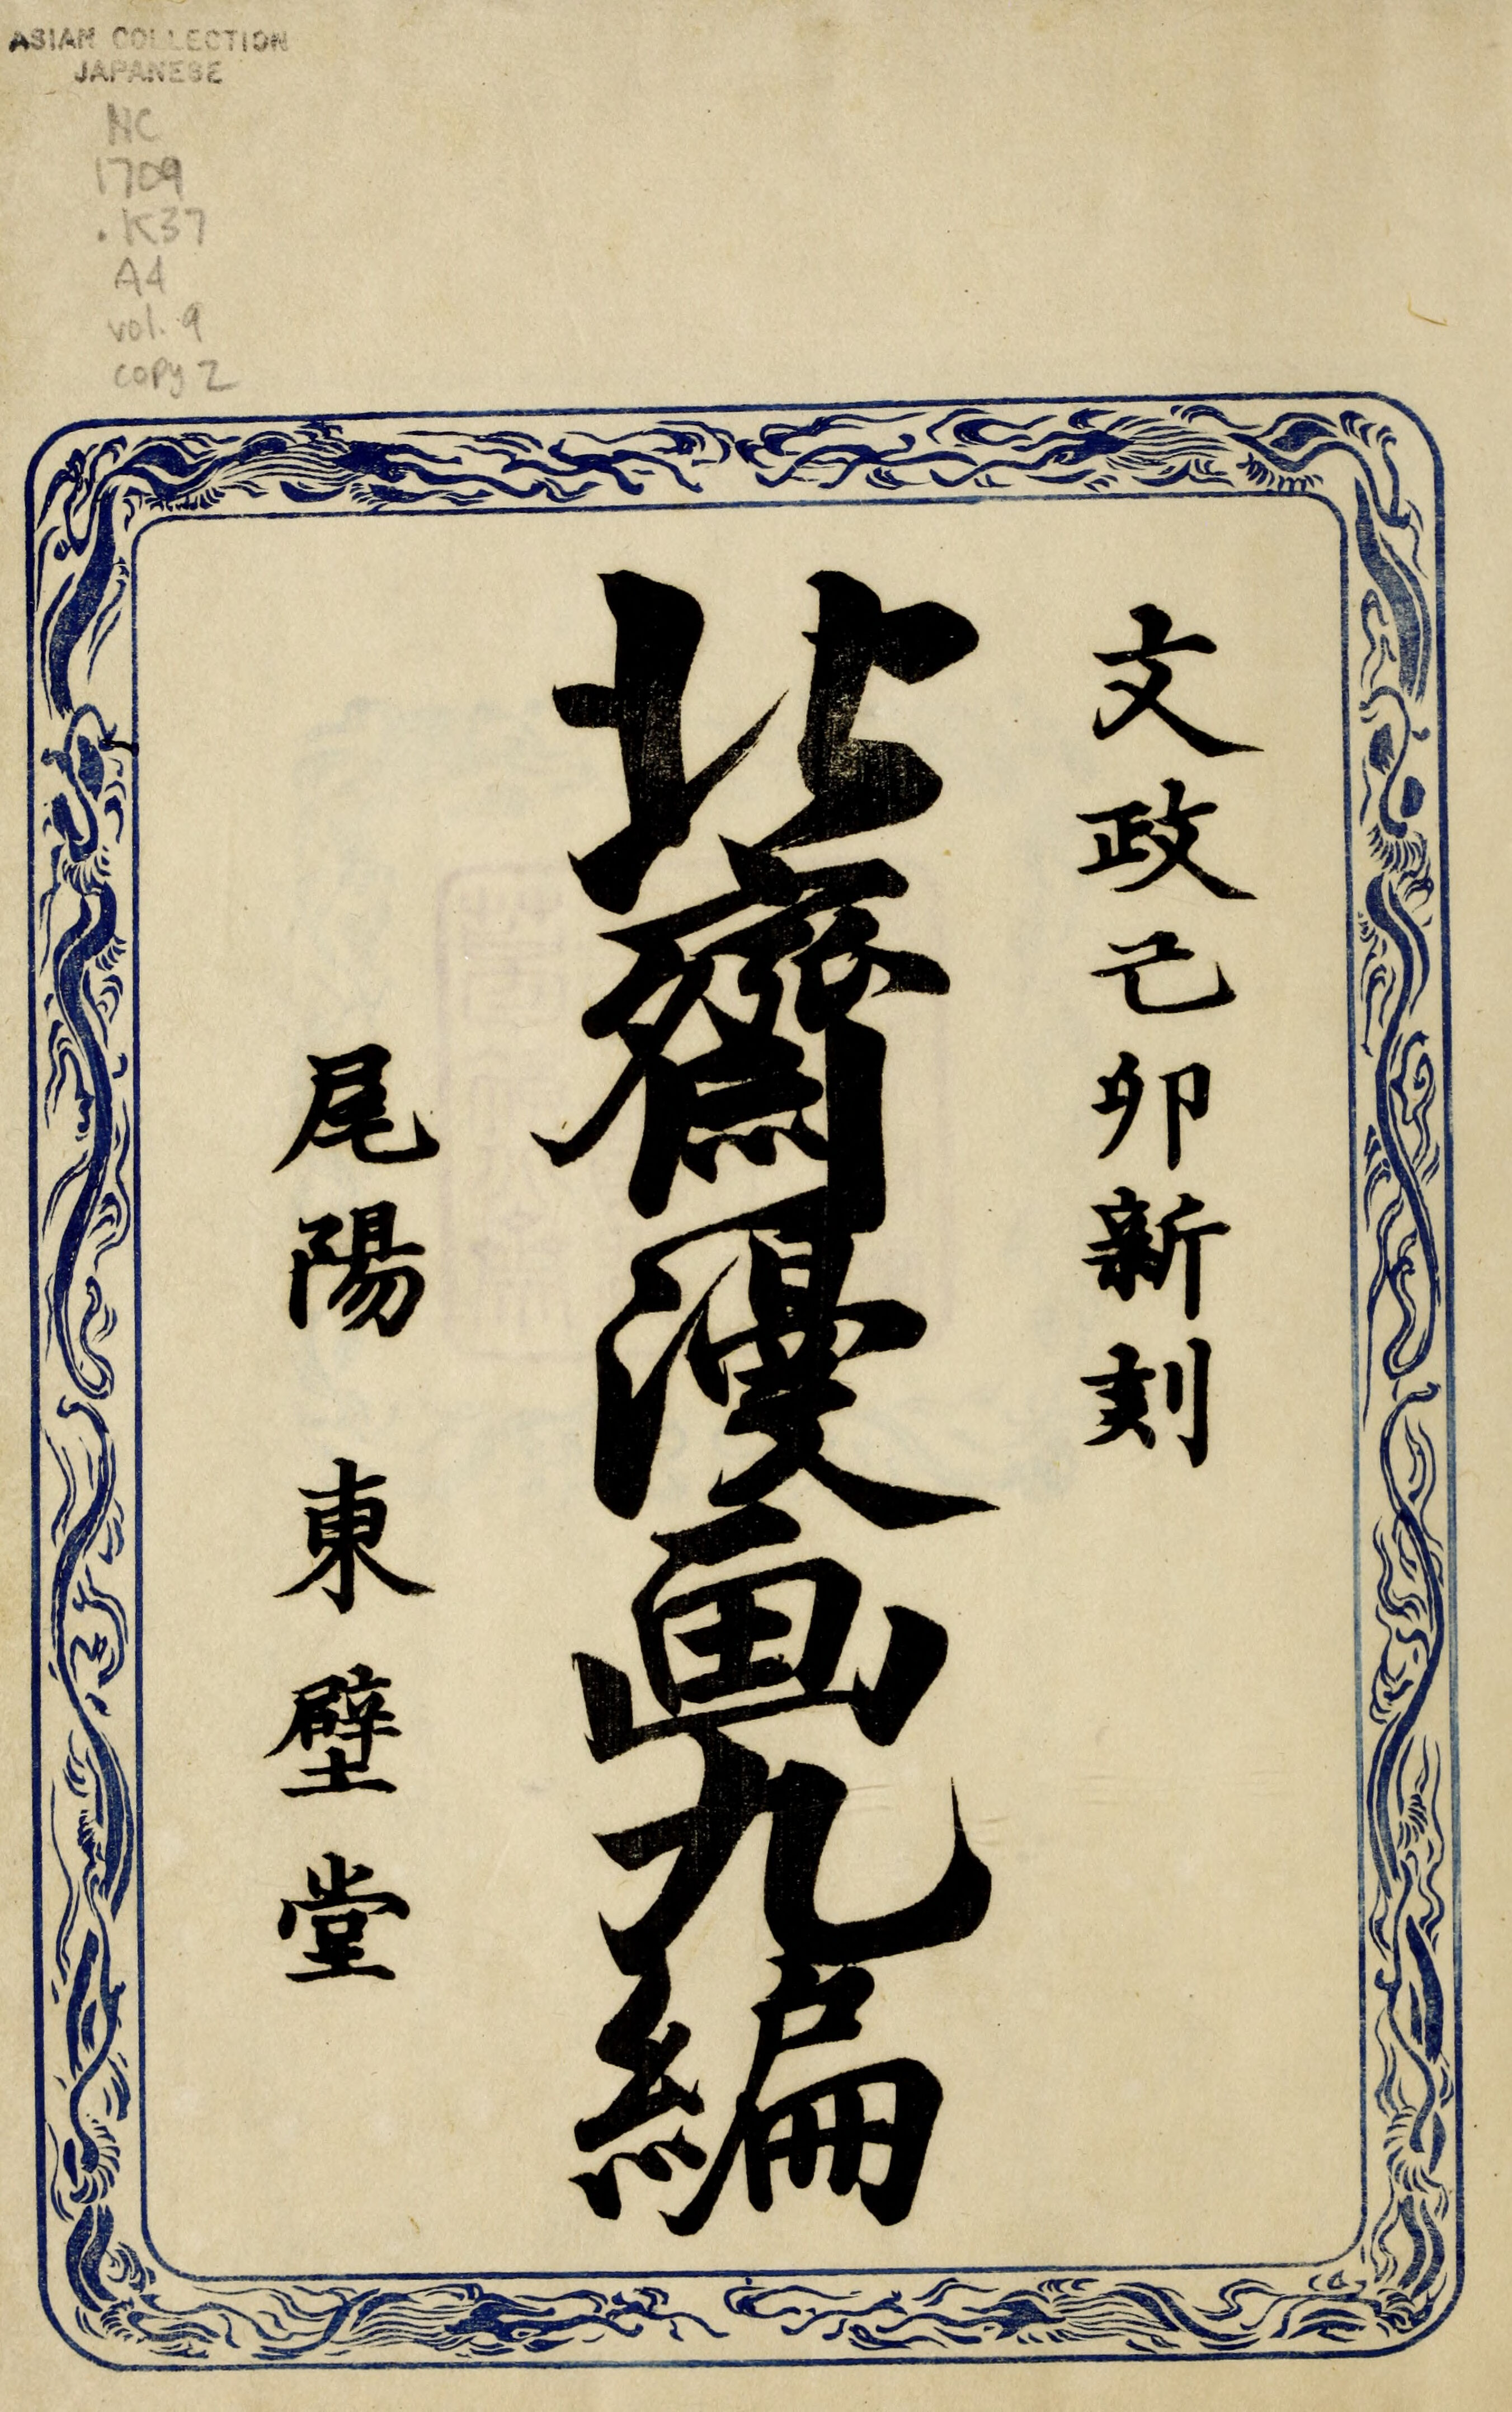 ASIAN COLLECTION
JAPANESE
NC
1709
.K37
A4
vol. 9
copy 2
文政己卯新刻
北齋漫画九編
尾陽 東壁堂